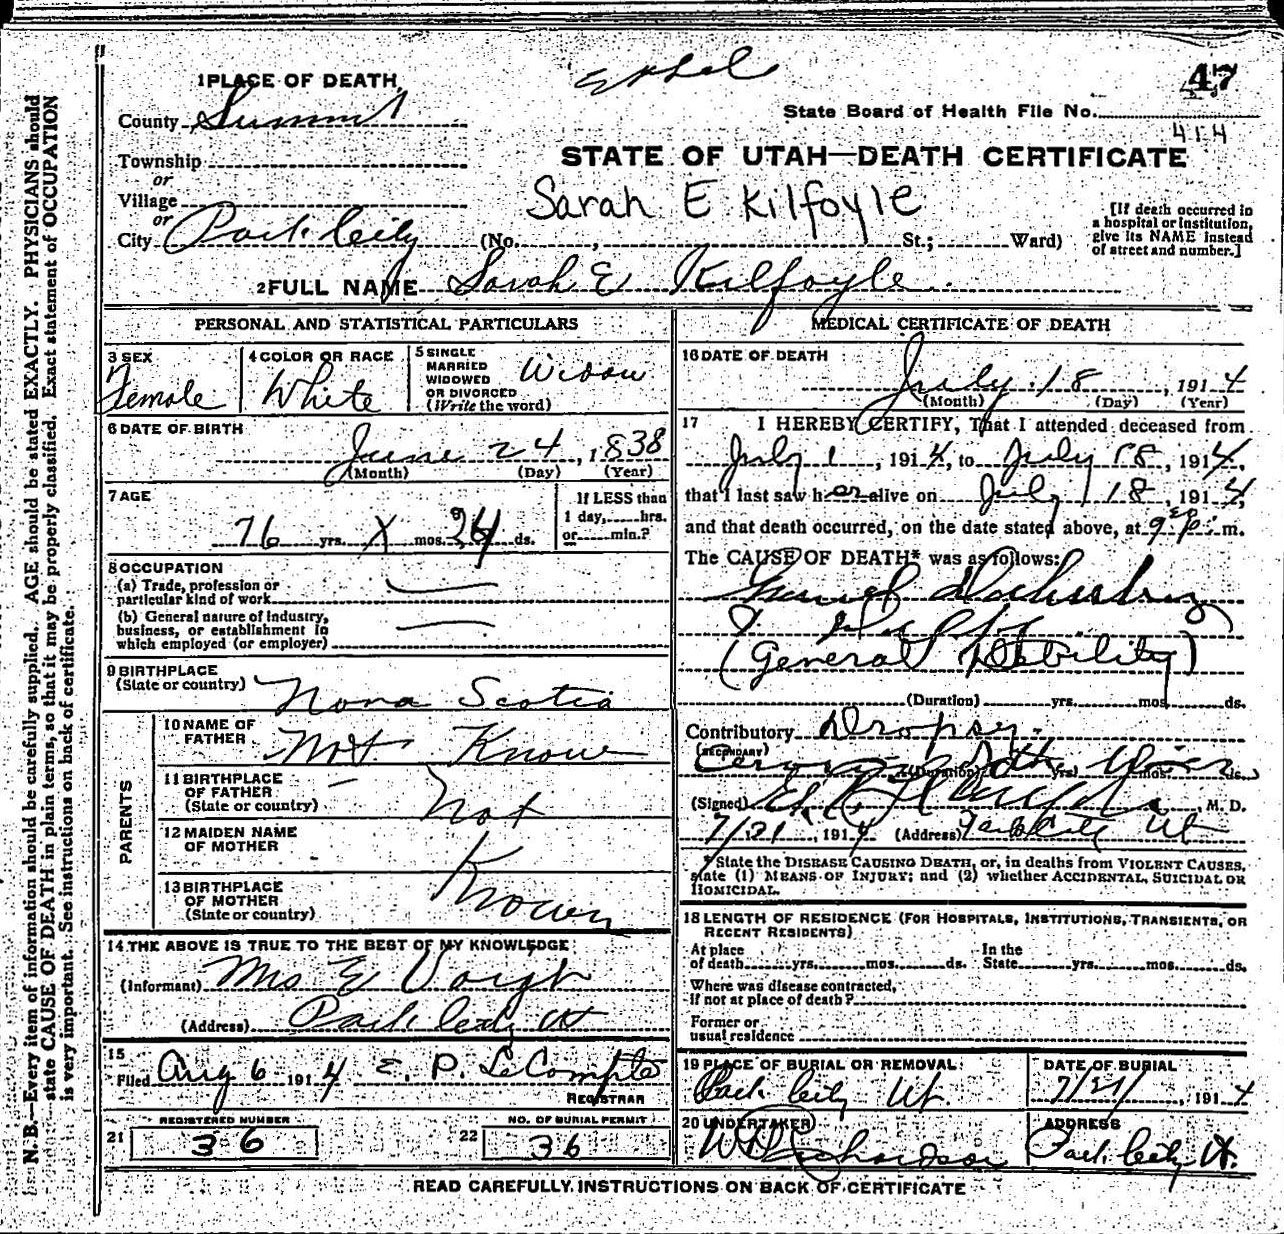 47
1 PLACE OF DEATH
State Board of Health File No.
414
County Summit
STATE OF UTAH—DEATH CERTIFICATE
Township
or
Village
Sarah E Kilfoyle
or
City Park City (No. , St.; Ward)
[If death occurred in
a hospital or institution,
give its NAME instead
of street and number.]
2 FULL NAME Sarah E Kilfoyle
PERSONAL AND STATISTICAL PARTICULARS
3 SEX
Female
4 COLOR OR RACE
White
5 SINGLE
MARRIED
WIDOWED
OR DIVORCED
(Write the word)
Widow
6 DATE OF BIRTH
June 24, 1838
(Month) (Day) (Year)
7 AGE
76 yrs. X mos. 24 ds.
If LESS than
1 day,.....hrs.
or.....min.?
8 OCCUPATION
(a) Trade, profession or
particular kind of work
(b) General nature of industry,
business, or establishment in
which employed (or employer)
9 BIRTHPLACE
(State or country)
Nova Scotia
PARENTS
10 NAME OF
FATHER
Not Know
11 BIRTHPLACE
OF FATHER
(State or country)
Not
12 MAIDEN NAME
OF MOTHER
Known
13 BIRTHPLACE
OF MOTHER
(State or country)
14 THE ABOVE IS TRUE TO THE BEST OF MY KNOWLEDGE
(Informant) Mrs E Voigt
(Address) Park City Ut
15
Filed Aug 6 1914 E. P. LeCompte
REGISTRAR
REGISTERED NUMBER
21 36
NO. OF BURIAL PERMIT
22 36
MEDICAL CERTIFICATE OF DEATH
16 DATE OF DEATH
July 18, 1914
(Month) (Day) (Year)
17 I HEREBY CERTIFY, That I attended deceased from
July 1, 1914, to July 18, 1914,
that I last saw her alive on July 18, 1914,
and that death occurred, on the date stated above, at 9 P. m.
The CAUSE OF DEATH* was as follows:
(General Debility)
(Duration) yrs. mos. ds.
Contributory Dropsy.
(SECONDARY)
(Duration) yrs. mos. ds.
(Signed) M. D.
7/21, 1914 (Address) Park City Ut
* State the DISEASE CAUSING DEATH, or, in deaths from VIOLENT CAUSES,
state (1) MEANS OF INJURY; and (2) whether ACCIDENTAL, SUICIDAL OR
HOMICIDAL.
18 LENGTH OF RESIDENCE (FOR HOSPITALS, INSTITUTIONS, TRANSIENTS, OR
RECENT RESIDENTS)
At place
of death yrs. mos. ds.
In the
State yrs. mos. ds.
Where was disease contracted,
if not at place of death?
Former or
usual residence
19 PLACE OF BURIAL OR REMOVAL
Park City Ut.
DATE OF BURIAL
7/21/, 1914
20 UNDERTAKER
W Richardson
ADDRESS
Park City Ut.
READ CAREFULLY INSTRUCTIONS ON BACK OF CERTIFICATE
N.B.—Every item of information should be carefully supplied. AGE should be stated EXACTLY. PHYSICIANS should
state CAUSE OF DEATH in plain terms, so that it may be properly classified. Exact statement of OCCUPATION
is very important. See instructions on back of certificate.